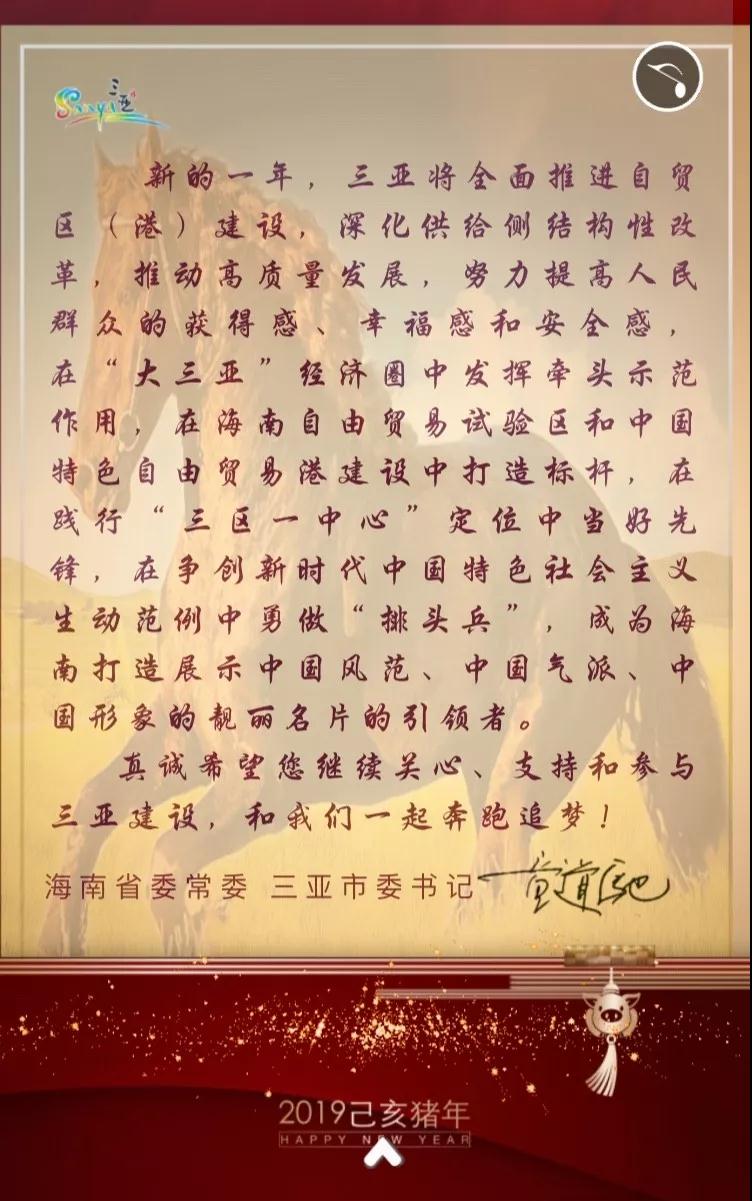 三亚
Sanya
新的一年，三亚将全面推进自贸
区（港）建设，深化供给侧结构性改
革，推动高质量发展，努力提高人民
群众的获得感、幸福感和安全感，
在“大三亚”经济圈中发挥牵头示范
作用，在海南自由贸易试验区和中国
特色自由贸易港建设中打造标杆，在
践行“三区一中心”定位中当好先
锋，在争创新时代中国特色社会主义
生动范例中勇做“排头兵”，成为海
南打造展示中国风范、中国气派、中
国形象的靓丽名片的引领者。
真诚希望您继续关心、支持和参与
三亚建设，和我们一起奔跑追梦！
海南省委常委 三亚市委书记 童道驰
2019己亥猪年
HAPPY NEW YEAR